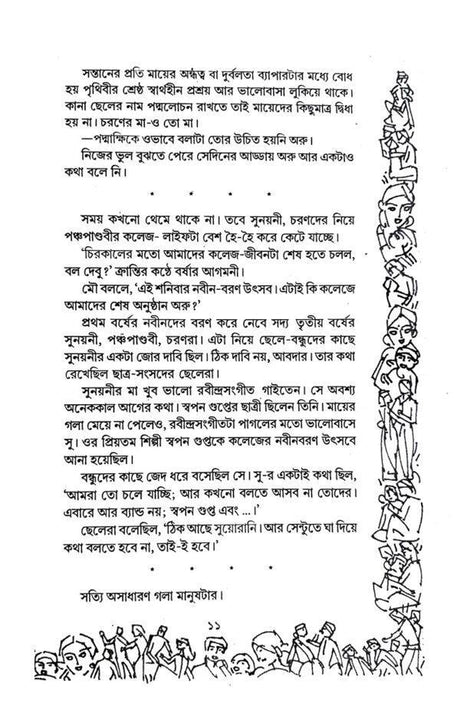 সন্তানের প্রতি মায়ের অন্ধত্ব বা দুর্বলতা ব্যাপারটার মধ্যে বোধ
হয় পৃথিবীর শ্রেষ্ঠ স্বার্থহীন প্রশ্রয় আর ভালোবাসা লুকিয়ে থাকে।
কানা ছেলের নাম পদ্মলোচন রাখতে তাই মায়েদের কিছুমাত্র দ্বিধা
হয় না। চরণের মা-ও তো মা।
—পদ্মাক্ষিকে ওভাবে বলাটা তোর উচিত হয়নি অরু।
নিজের ভুল বুঝতে পেরে সেদিনের আড্ডায় অরু আর একটাও
কথা বলে নি।
* * * *
সময় কখনো থেমে থাকে না। তবে সুনয়নী, চরণদের নিয়ে
পঞ্চপাণ্ডবীর কলেজ- লাইফটা বেশ হৈ-হৈ করে কেটে যাচ্ছে।
'চিরকালের মতো আমাদের কলেজ-জীবনটা শেষ হতে চলল,
বল দেবু?' ক্রান্তির কণ্ঠে বর্ষার আগমনী।
মৌ বললে, 'এই শনিবার নবীন-বরণ উৎসব। এটাই কি কলেজে
আমাদের শেষ অনুষ্ঠান অরু?'
প্রথম বর্ষের নবীনদের বরণ করে নেবে সদ্য তৃতীয় বর্ষের
সুনয়নী, পঞ্চপাণ্ডবী, চরণরা। এটা নিয়ে ছেলে-বন্ধুদের কাছে
সুনয়নীর একটা জোর দাবি ছিল। ঠিক দাবি নয়, আবদার। তার কথা
রেখেছিল ছাত্র-সংসদের ছেলেরা।
সুনয়নীর মা খুব ভালো রবীন্দ্রসংগীত গাইতেন। সে অবশ্য
অনেককাল আগের কথা। স্বপন গুপ্তের ছাত্রী ছিলেন তিনি। মায়ের
গলা মেয়ে না পেলেও, রবীন্দ্রসংগীতটা পাগলের মতো ভালোবাসে
সু। ওর প্রিয়তম শিল্পী স্বপন গুপ্তকে কলেজের নবীনবরণ উৎসবে
আনা হয়েছিল।
বন্ধুদের কাছে জেদ ধরে বসেছিল সে। সু-র একটাই কথা ছিল,
'আমরা তো চলে যাচ্ছি; আর কখনো বলতে আসব না তোদের।
এবারে আর ব্যান্ড নয়; স্বপন গুপ্ত এবং ...।'
ছেলেরা বলেছিল, 'ঠিক আছে সুয়োরানি। আর সেন্টুতে ঘা দিয়ে
কথা বলতে হবে না, তাই-ই হবে।'
* * * *
সত্যি অসাধারণ গলা মানুষটার।
১১